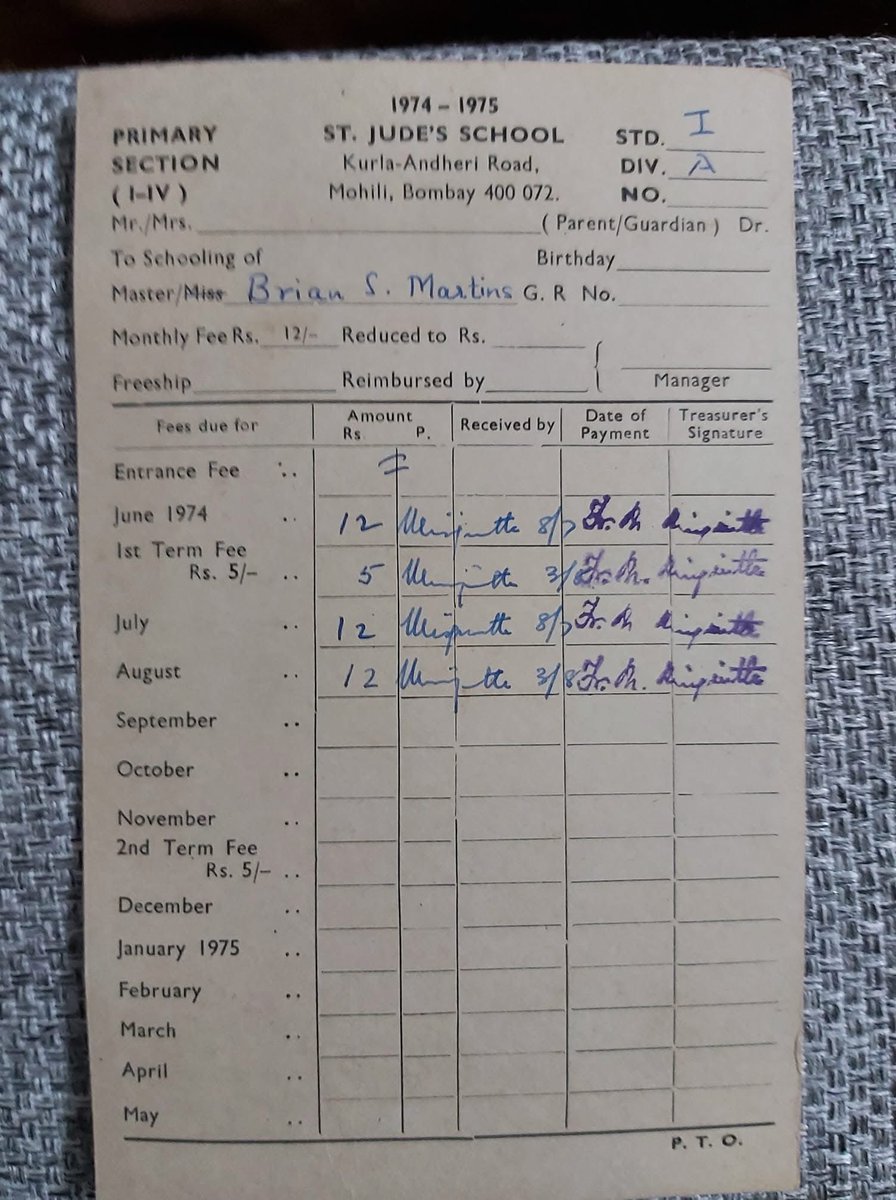 1974 – 1975
PRIMARY ST. JUDE'S SCHOOL STD. I
SECTION Kurla-Andheri Road, DIV. A
( I–IV ) Mohili, Bombay 400 072. NO.
Mr./Mrs. ( Parent/Guardian ) Dr.
To Schooling of Birthday
Master/Miss Brian S. Martins G. R No.
Monthly Fee Rs. 12/- Reduced to Rs.
Freeship Reimbursed by Manager
Fees due for Amount Rs P. Received by Date of Payment Treasurer's Signature
Entrance Fee ..
June 1974 .. 12 8/7 Fr. M
1st Term Fee
Rs. 5/– .. 5 3/8 Fr. M.
July .. 12 8/7 Fr. M
August .. 12 3/8 Fr. M.
September ..
October ..
November ..
2nd Term Fee
Rs. 5/– ..
December ..
January 1975 ..
February ..
March ..
April ..
May ..
P. T. O.